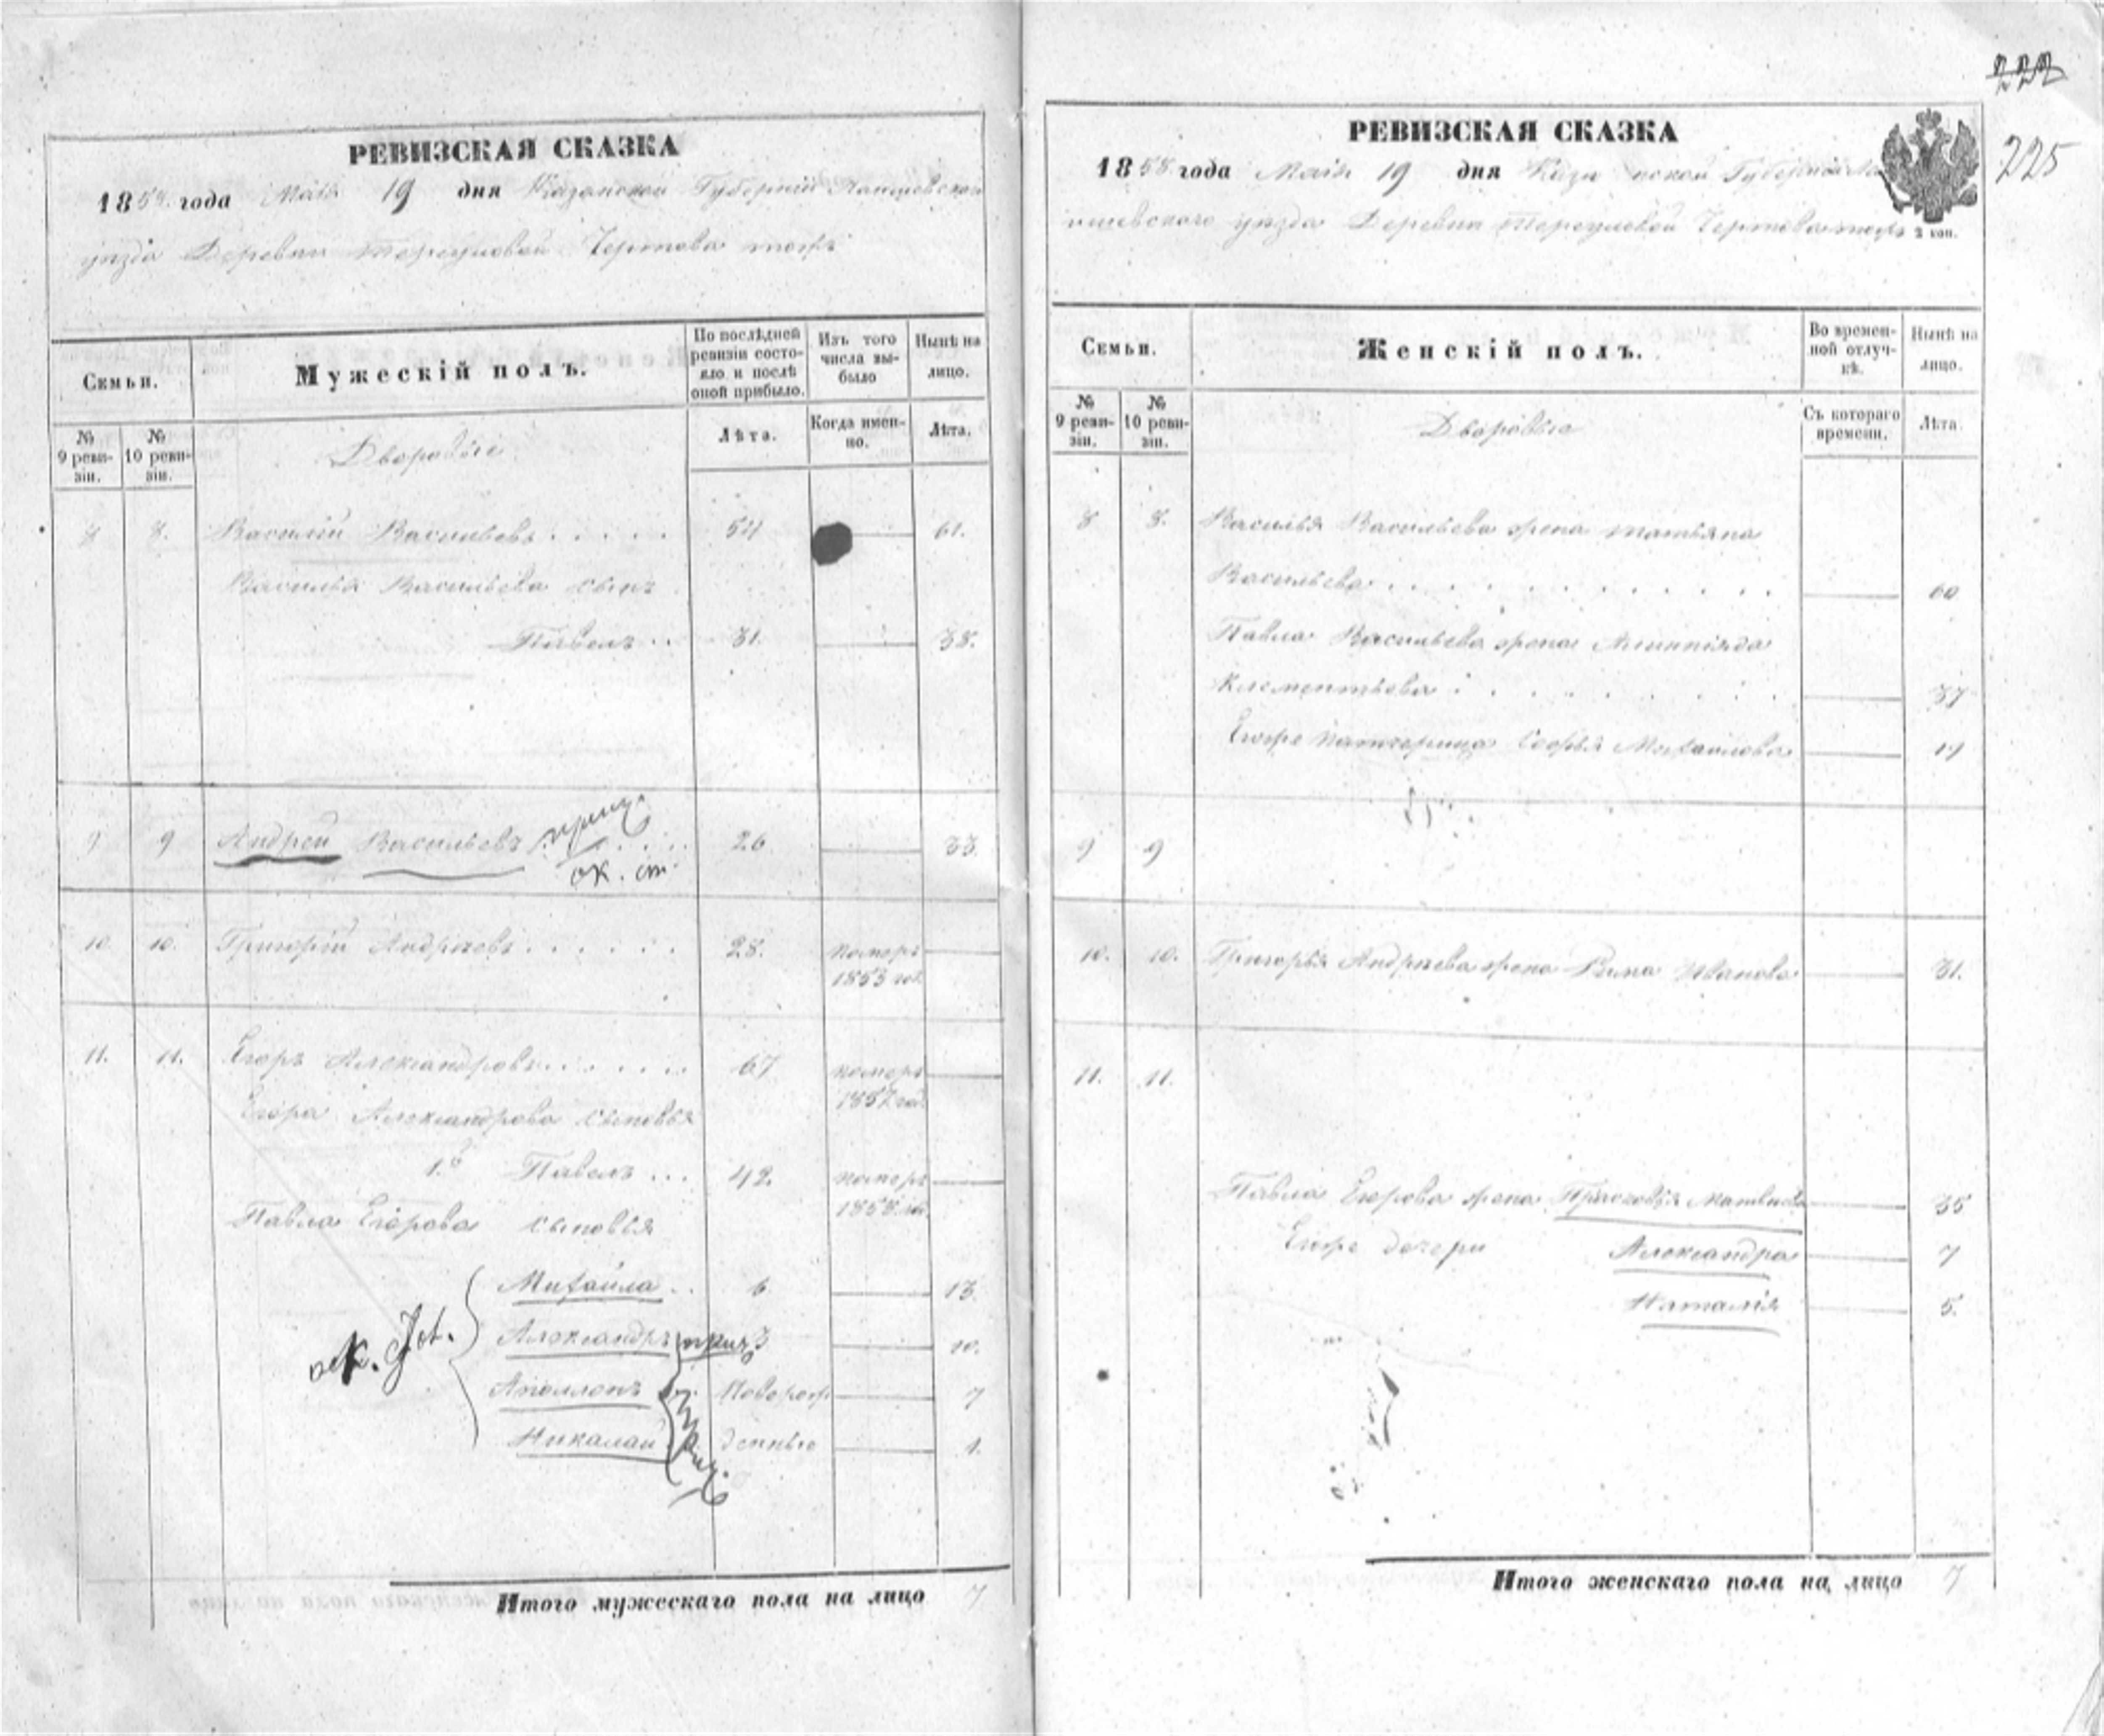 222
225
РЕВИЗСКАЯ СКАЗКА
1858 года Маія 19 дня Казанской Губерніи Лаишевскаго
уезда Деревни Чертова тожъ
Семьи.
Мужескій полъ.
По послѣдней ревизіи состояло и послѣ оной прибыло.
Изъ того числа выбыло
Нынѣ на лицо.
№ 9 ревизіи.
№ 10 ревизіи.
Дворовые
Лѣта.
Когда именно.
Лѣта.
8 8. Василій Васильевъ 54 61.
Василья Васильева сынъ
Павелъ 31. 38.
9 9 Андрей Васильевъ 26 33.
ок. ст.
10. 10. Григорій Андреевъ 28. померъ
1853 год.
11. 11. Егоръ Александровъ 67 померъ
1857 год.
Егора Александрова сыновья
1.й Павелъ 42. померъ
1858
Павла Егорова сыновья
Михайла 6. 13.
Александръ 3 10.
Аполлонъ Поворож 7
Николай денные 1.
Итого мужескаго пола на лицо 7
РЕВИЗСКАЯ СКАЗКА
1858 года Маія 19 дня Казанской Губерніи Ла
ишевскаго уезда Деревни Чертова тожъ
2 коп.
Семьи.
Женскій полъ.
Во временной отлучкѣ.
Нынѣ на лицо.
№ 9 ревизіи.
№ 10 ревизіи.
Дворовые
Съ котораго времени.
Лѣта.
8 8. Василья Васильева жена Татьяна
Васильева 60
Павла Васильева жена Алимпіяда
Клементьева 37
Егоже падчерица Софья Михайлова 19
9 9
10. 10. Григорья Андреева жена Иванова 31.
11. 11.
Павла Егорова жена Прасковья Матвеева 35
Егоже дочери Александра 7
Наталія 5.
Итого женскаго пола на лицо 7